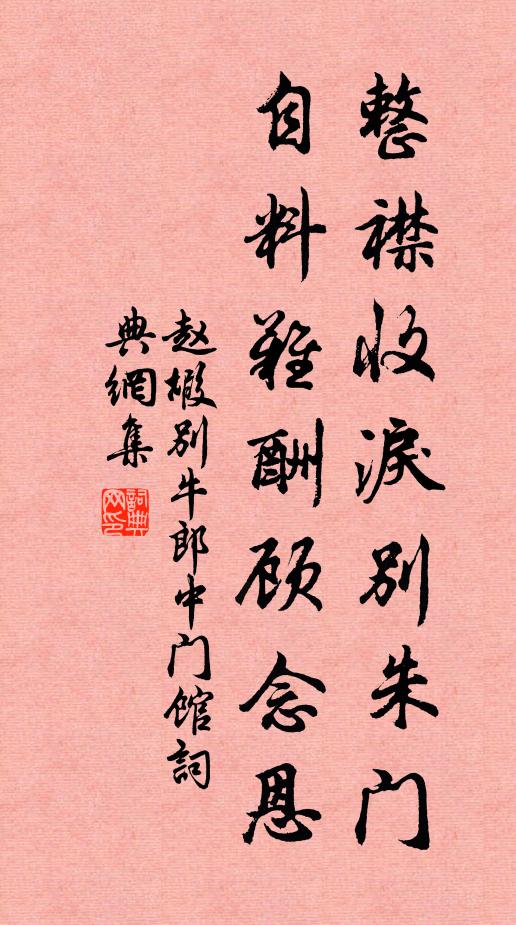 整襟收淚别朱门
自料難酬顾念恩
赵嘏别牛郎中门館詞
典網集
詞典网印